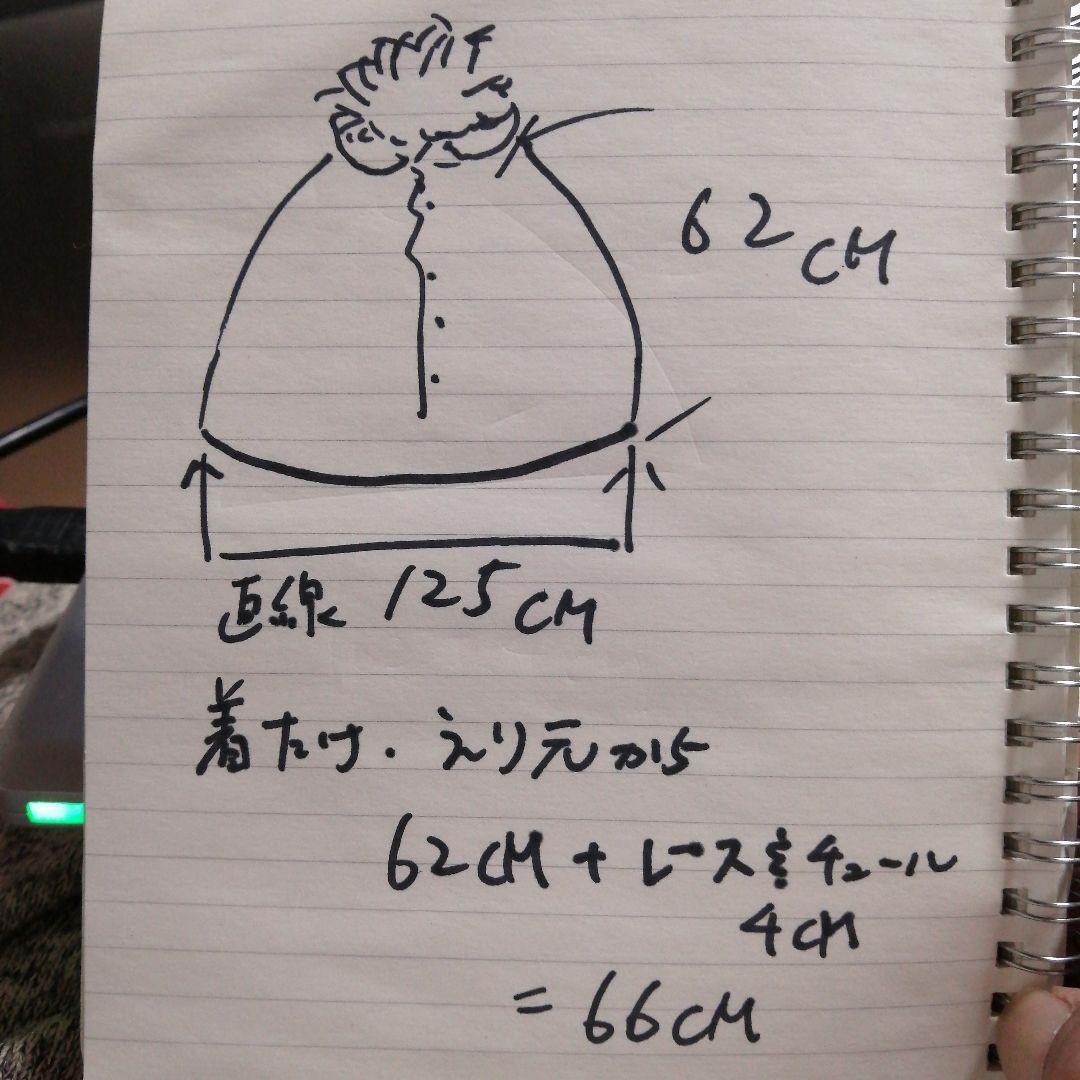 62cM
直線 125cM
着たけ.えり元から
62cM+レース&チュール
4cM
=66cM